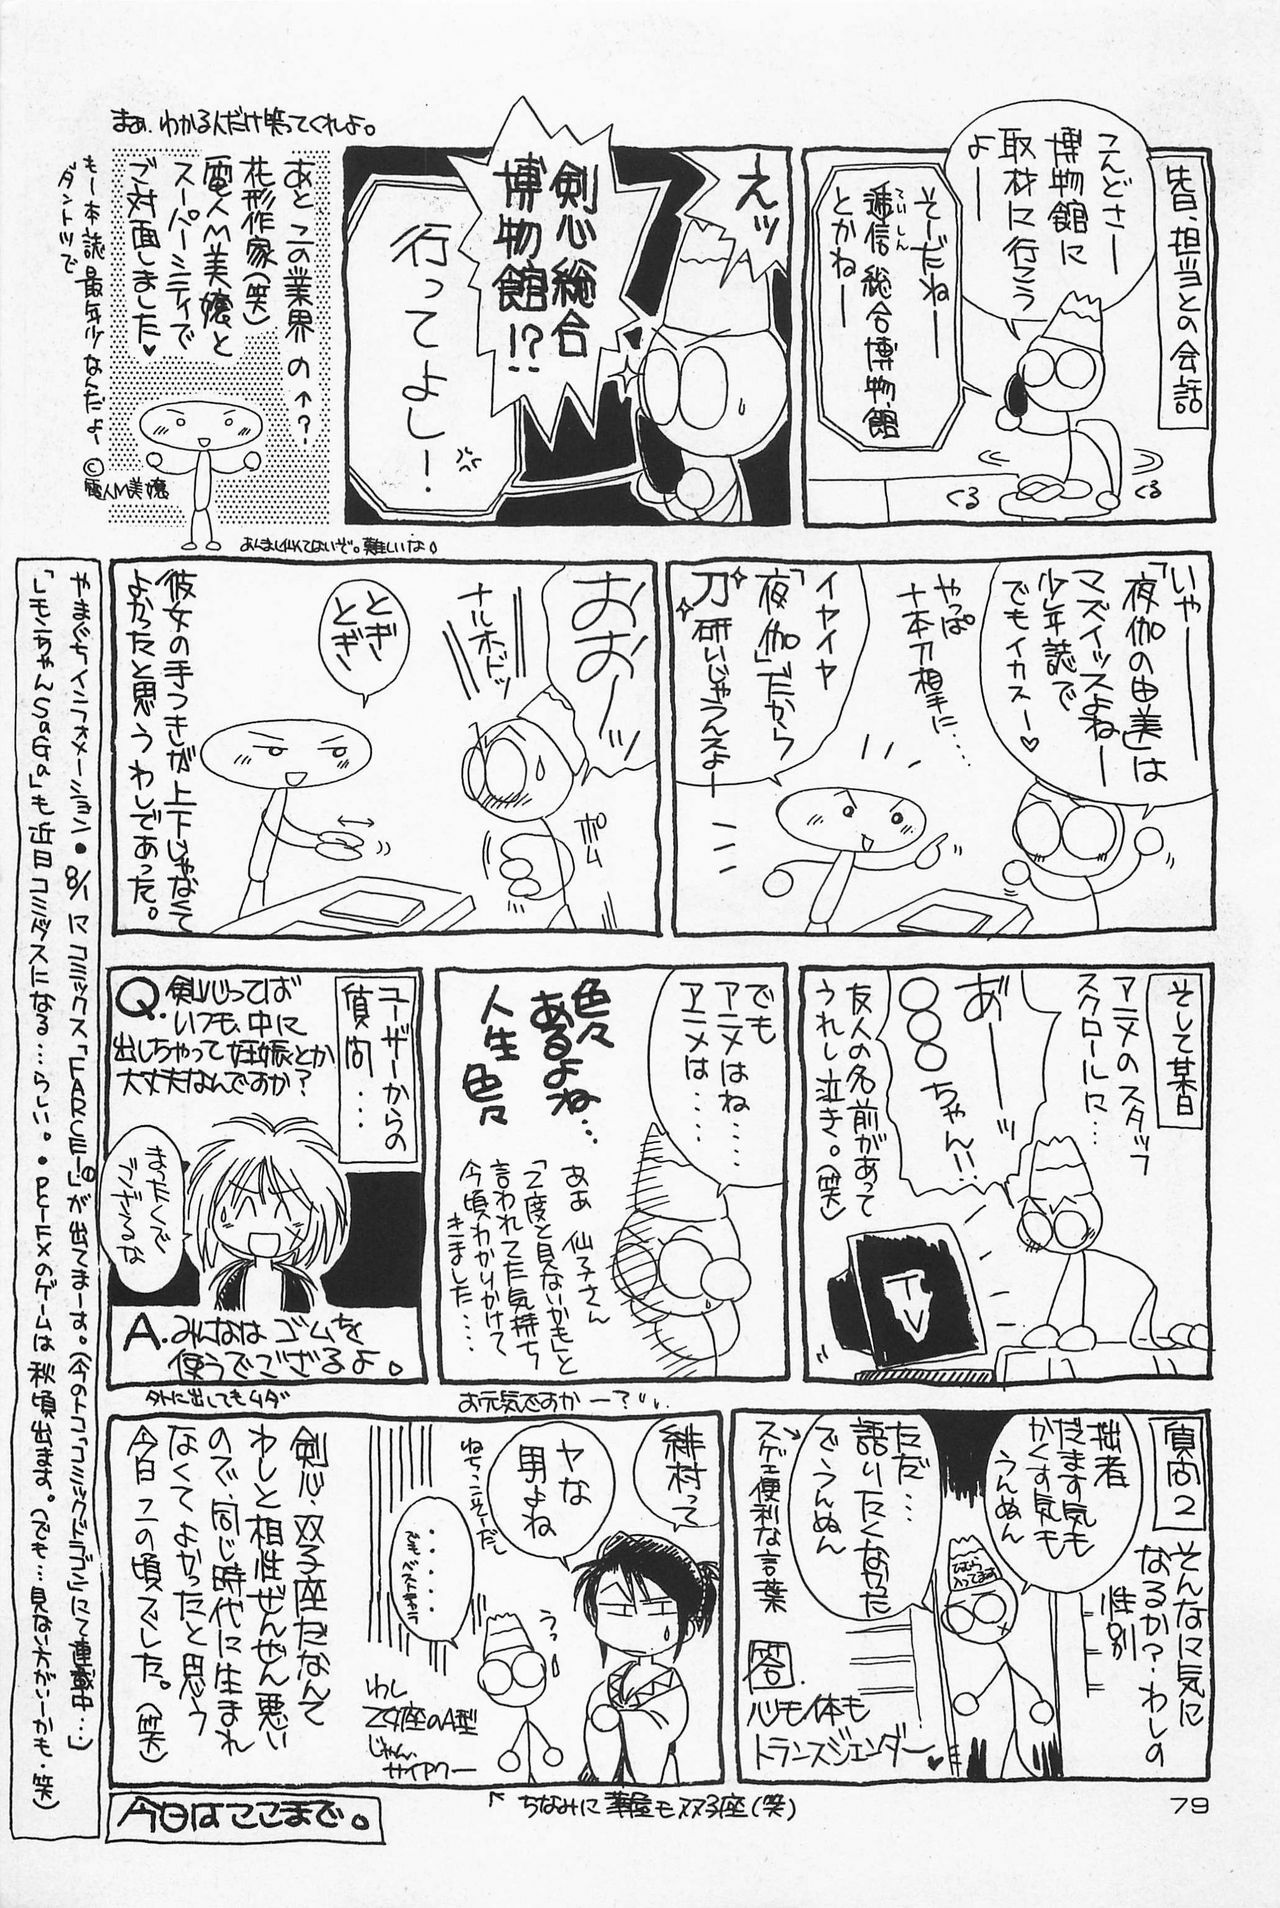 先日、担当との会話
こんどさー
博物館に
取材に行こう
よー
そーだねー
逓信総合博物館
ていしん
とかねー
くる
くる
えッ
剣心総合
博物館!?
行ってよし!
まぁ、わかる人だけ笑ってくれよ。
あとこの業界の↑?
花形作家(笑)
電人M美嬢と
スーパーシティで
ご対面しました♥
もー本誌最年少なんだよー
ダントツで
©電人M美嬢
あんまし似てないぞ。難しいな。
いやーー
「夜伽の由美」は
マズイッスよねー
少年誌で
でもイカスー♡
やっぱ
十本刀相手に…
イヤイヤ
「夜伽」だから
刀研いじゃうんスよー
おおーッ
ナルホドッ
ポム
とぎ
とぎ
彼女の手つきが上下じゃなくて
よかったと思うわしであった。
そして某日
アニメのスタッフ
スクロールに…
あ゛ーーー
〇〇〇ちゃん!!
友人の名前があって
うれし泣き。(笑)
TV
でも
アニメはね…
アニメは……
色々
あるよね…
人生色々
ああ 仙子さん
「2度と見ないかも」と
言われてた気持ち
今頃わかりかけて
きました……
お元気ですかー?
ユーザーからの
質問…
Q.剣心ってば
いつも、中に
出しちゃって妊娠とか
大丈夫なんですか?
まったくで
ござるな
A.みんなはゴムを
使うでござるよ。
外に出してもムダ
質問2
そんなに気に
なるか?わしの
性別
拙者
だます気も
かくす気も
うんぬん
ただ…
語りたくなった
でうんぬん
スゲェ便利な言葉
答.
心も体も
トランスジェンダー♥
緋村って
ヤな
男よね
うっ
わし
乙女座のA型
じゃん、
サイアクー
剣心・双子座だなんて
わしと相性ぜんぜん悪い
ので、同じ時代に生まれ
なくてよかったと思う
今日この頃でした。(笑)
↖ちなみに華屋も双子座(笑)
今日はここまで。
やまぐちインフォメーション●8/1にコミックス「FARCE!」①が出てまーす。(今のトコ「コミックドラゴン」にて連載中…)
「しモンちゃんSaGa」も近日コミックスになる…らしい。●PC-FXのゲームは秋頃出ます。(でも…見ない方がいーかも・笑)
79